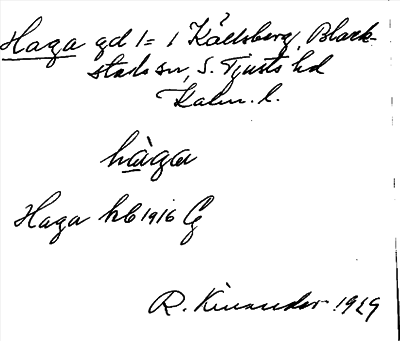 Haga gd 1= i Källsberg, Black-
stads sn, S. Tjusts hd
Kalm. l.
hàga
Haga hb 1916 G
R. Kinander 1929